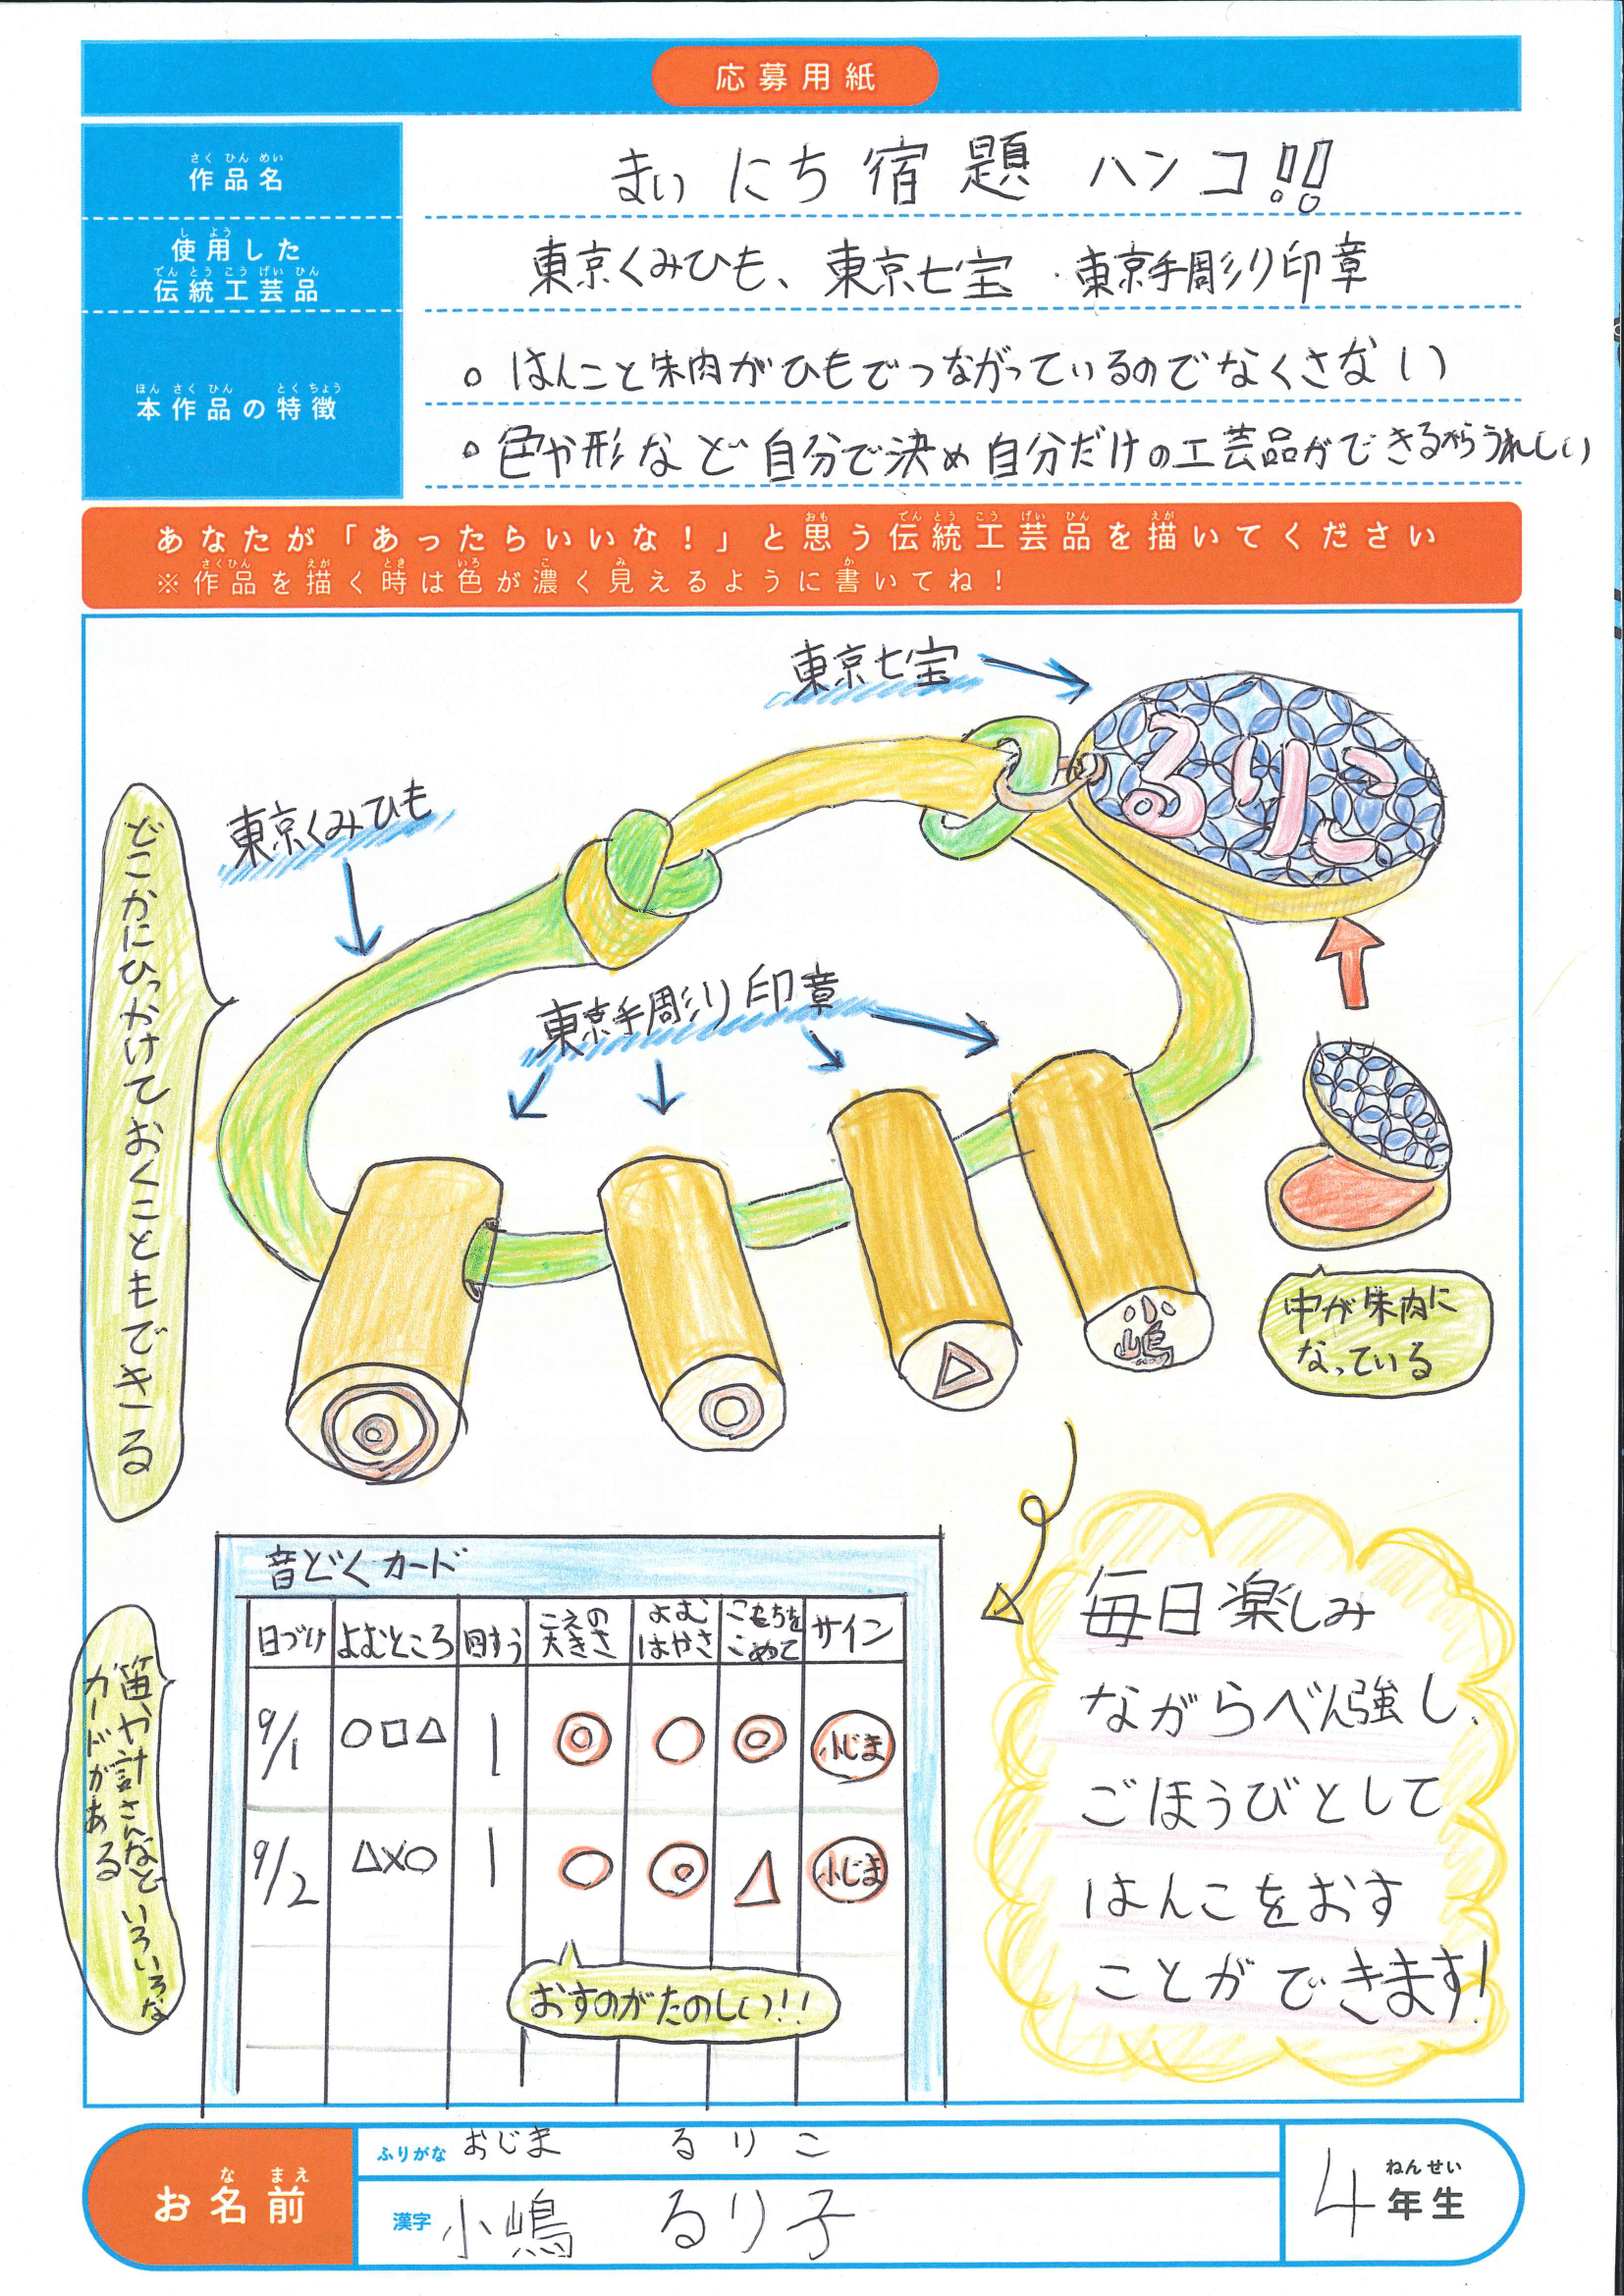 応募用紙
さくひんめい
作品名
まいにち宿題ハンコ!!
しよう
使用した
でんとうこうげいひん
伝統工芸品
東京くみひも、東京七宝・東京手彫り印章
ほんさくひん とくちょう
本作品の特徴
○はんこと朱肉がひもでつながっているのでなくさない
○色や形など自分で決め自分だけの工芸品ができるからうれしい
おも でんとうこうげいひん えが
あなたが「あったらいいな!」と思う伝統工芸品を描いてください
さくひん えが とき いろ こ み か
※作品を描く時は色が濃く見えるように書いてね!
東京七宝
るりこ
東京くみひも
どこかにひっかけておくこともできる
東京手彫り印章
小嶋
中が朱肉に
なっている
音どくカード
日づけ よむところ 回すう こえの大きさ よむはやさ きもちをこめて サイン
9/1 ○□△ 1 ◎ ○ ◎ 小じま
9/2 △×○ 1 ○ ◎ △ 小じま
おすのがたのしい!!
笛や計さんなどいろいろな
カードがある
毎日楽しみ
ながらべん強し、
ごほうびとして
はんこをおす
ことができます!
なまえ
お名前
ふりがな おじま るりこ
漢字 小嶋 るり子
ねんせい
4年生